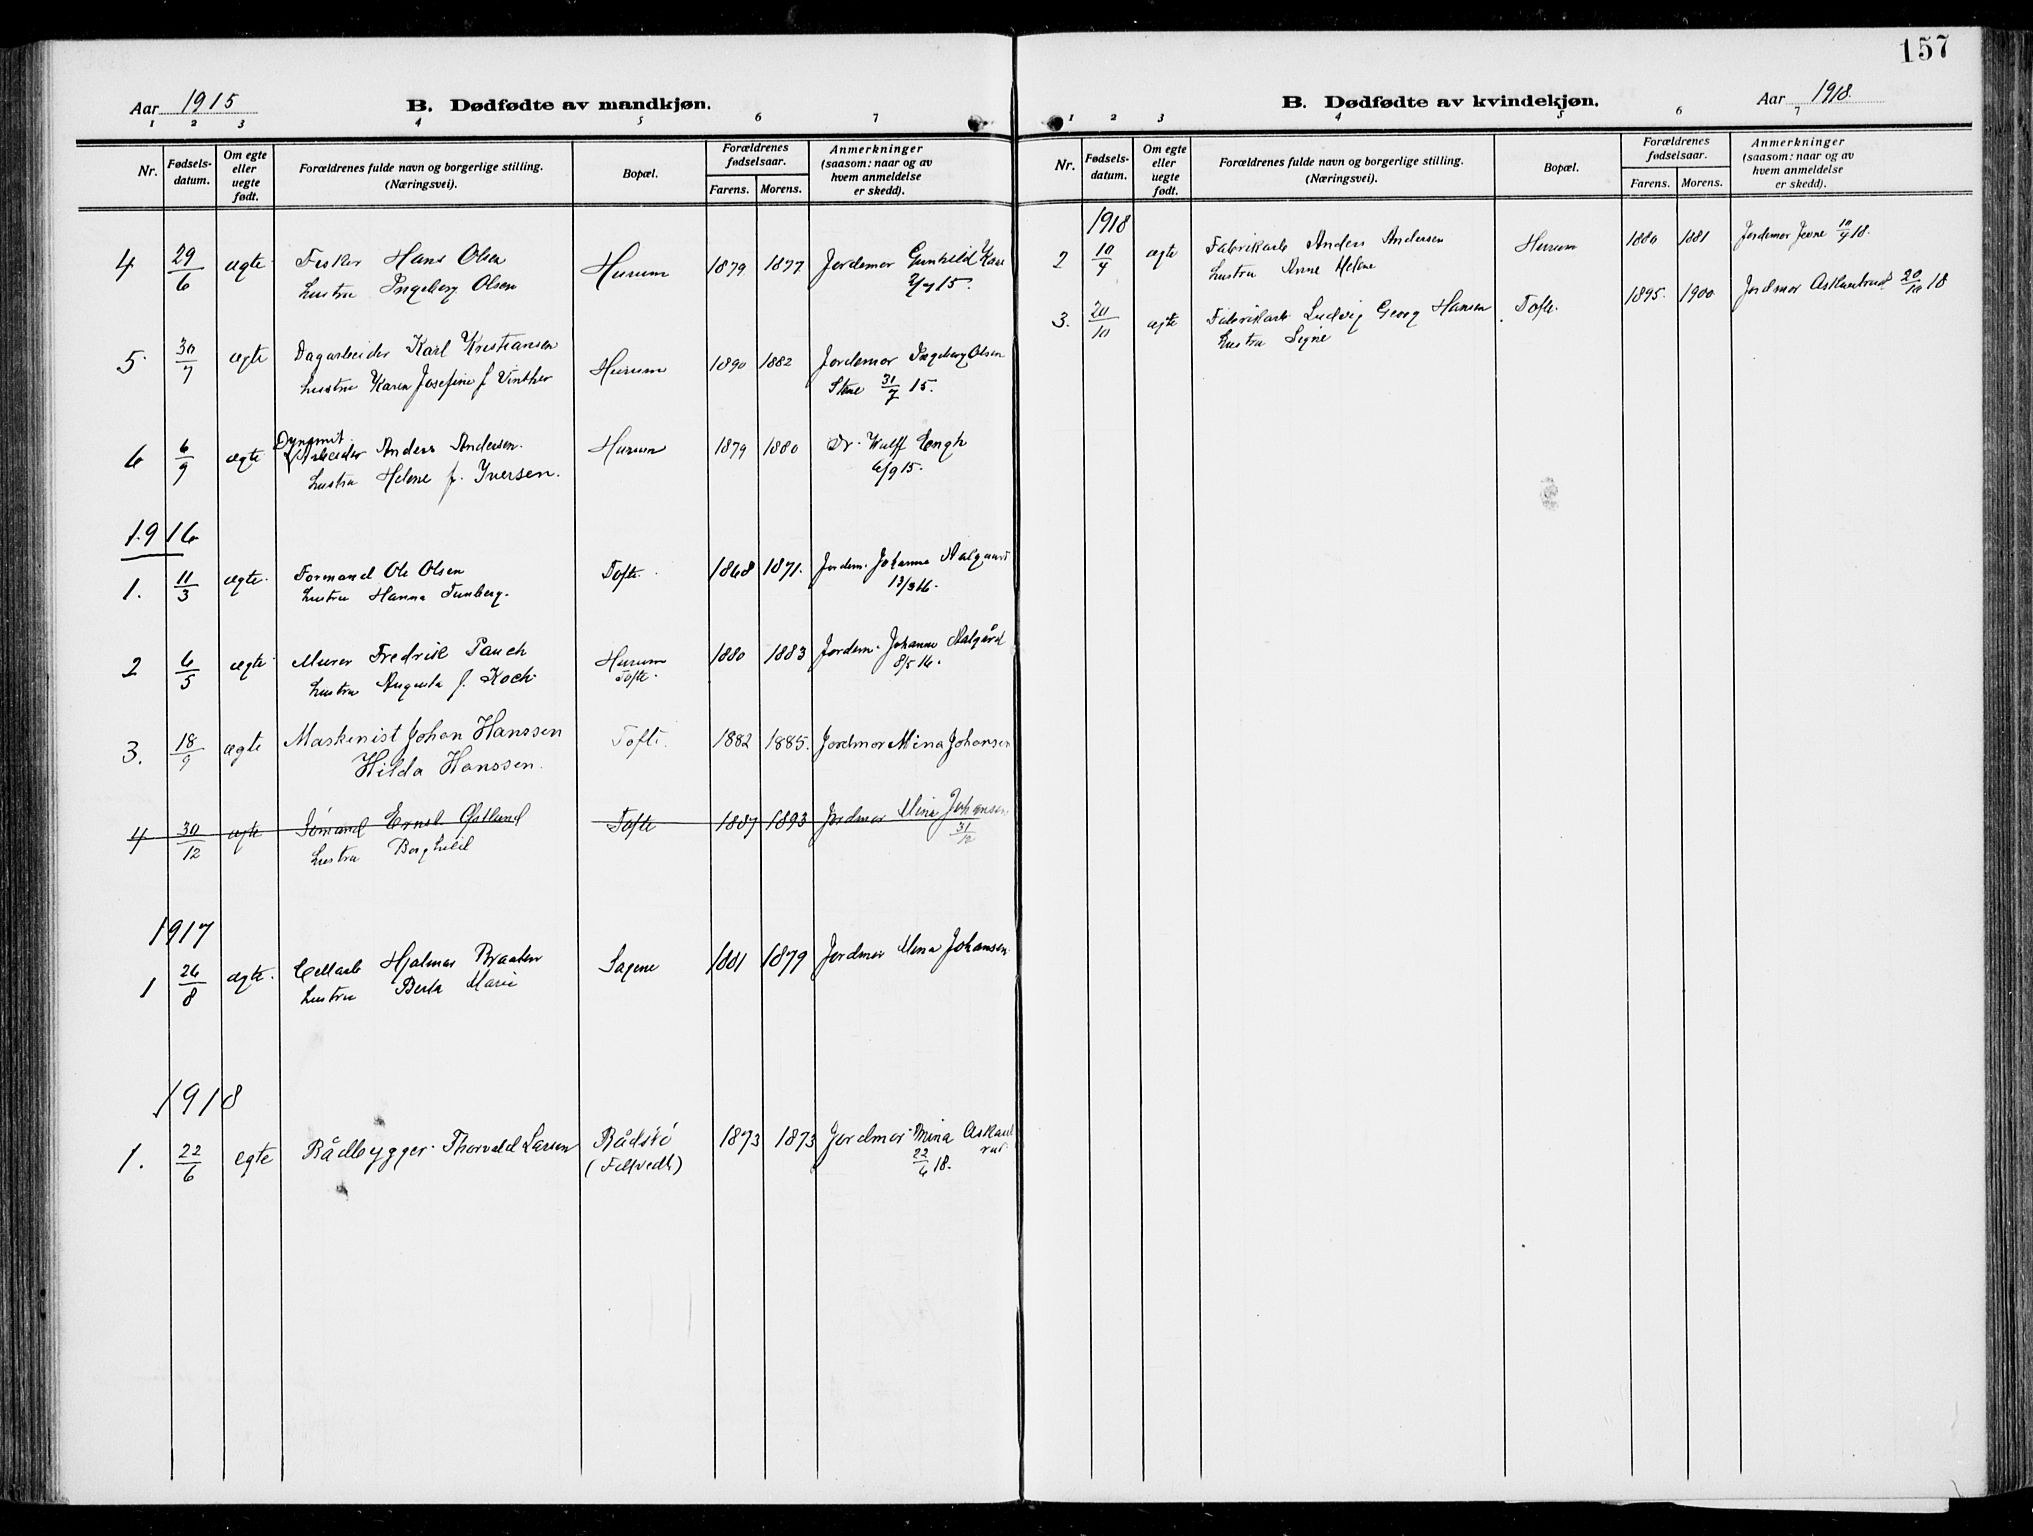 157
Aar 1915
B. Dødfødte av mandkjøn.
1 2 3 4 5 6 7
Nr.
Fødsels-datum.
Om egte eller uegte født.
Forældrenes fulde navn og borgerlige stilling. (Næringsvei).
Bopæl.
Forældrenes fødselsaar.
Farens. Morens.
Anmerkninger (saasom: naar og av hvem anmeldelse er skedd).
4 29/6 ægte Fisker Hans Olsen Hurum 1879 1877 Jordemor Gunhild
hustru Ingeborg Olsen 2/7 15.
5 30/7 ægte Dagarbeider Karl Kristiansen Hurum 1890 1882 Jordemor Ingeborg Olsen
hustru Karen Josefine f. Vinther Stene 31/7 15.
6 6/9 ægte Dynamit Arbeider Anders Andersen. Hurum 1879 1880 Dr. Wulff Engh
hustru Helene f. Iversen. 6/9 15.
1916
1. 11/3 ægte. Formand Ole Olsen Tofte. 1868 1871. Jordem. Johanna Aalgaard
hustru Hanna Tunberg. 13/3 16.
2 6/5 ægte Murer Fredrik Pauch Hurum 1880 1883 Jordem. Johanne Aalgård
hustru Augusta f. Koch. Tofte. 8/5 16.
3. 18/9 ægte Maskinist Johan Hanssen Tofte. 1882 1885. Jordmor Mina Johansen
Hilda Hanssen.
4 30/12 ægte Sømand Ernst Østlund Tofte 1887 1893 Jordmor Mina Johansen
hustru Borghild 31/12
1917
1 26/8 ægte. Cellarb Hjalmar Braaten Sagene 1881 1879 Jordmor Mina Johansen.
hustru Berta Marie
1918
1. 22/6 egte Bådbygger Thorvald Larsen Bådstø 1873 1873 Jordmor Mina Askaut
(Filtvedt) 22/6 18. rud
B. Dødfødte av kvindekjøn.
Aar 1918.
1 2 3 4 5 6 7
Nr.
Fødsels-datum.
Om egte eller uegte født.
Forældrenes fulde navn og borgerlige stilling. (Næringsvei).
Bopæl.
Forældrenes fødselsaar.
Farens. Morens.
Anmerkninger (saasom: naar og av hvem anmeldelse er skedd).
1918
2 10/4 ægte Fabrikarb Anders Andersen Hurum 1880 1881 Jordemor Jevne 10/4 18.
hustru Anne Helene
3. 20/10 ægte Fabrikarb Ludvig Georg Hansen Tofte. 1895. 1900 Jordmor Askautrud 20/10 18
hustru Signe